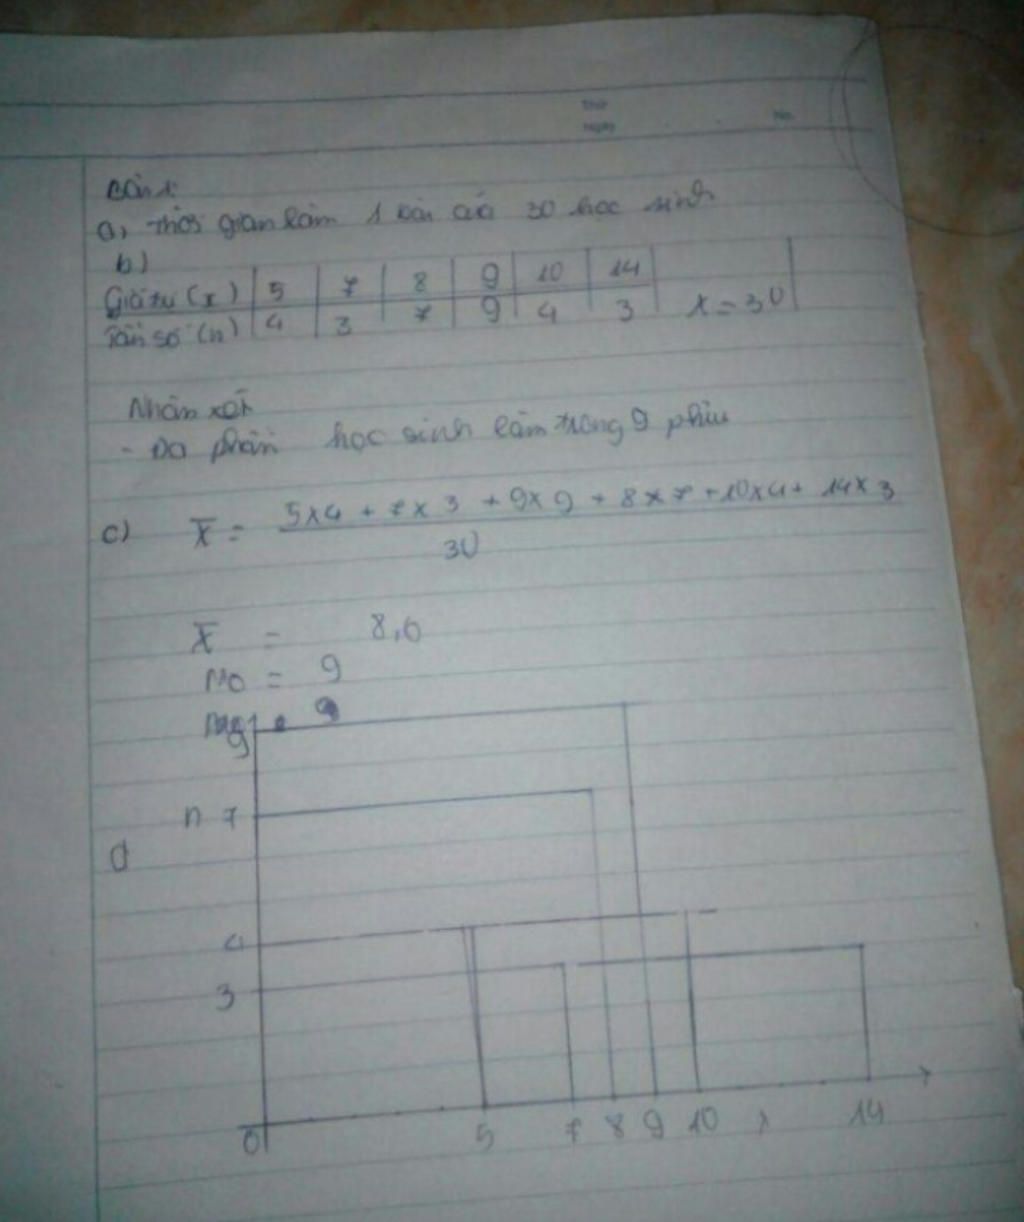 Thứ
Ngày
No.
Bài 1:
a, Thời gian làm 1 bài của 30 học sinh
b)
Giá trị (x) 5 7 8 9 10 14
Tần số (n) 4 3 7 9 4 3 X = 30
Nhận xét
- Đa phần học sinh làm trong 9 phút
c) X̄ = 5x4 + 7x3 + 9x9 + 8x7 + 10x4 + 14x3
30
X̄ = 8,6
M0 = 9
9
n 7
d
4
3
0 5 7 8 9 10 x 14